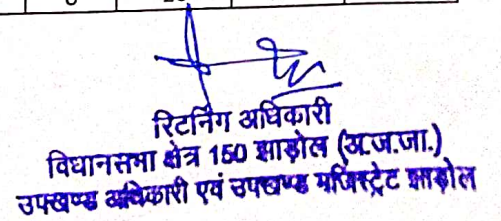 रिटर्निंग अधिकारी
विधानसभा क्षेत्र 150 झाड़ोल (अ.ज.जा.)
उपखण्ड अधिकारी एवं उपखण्ड मजिस्ट्रेट झाड़ोल